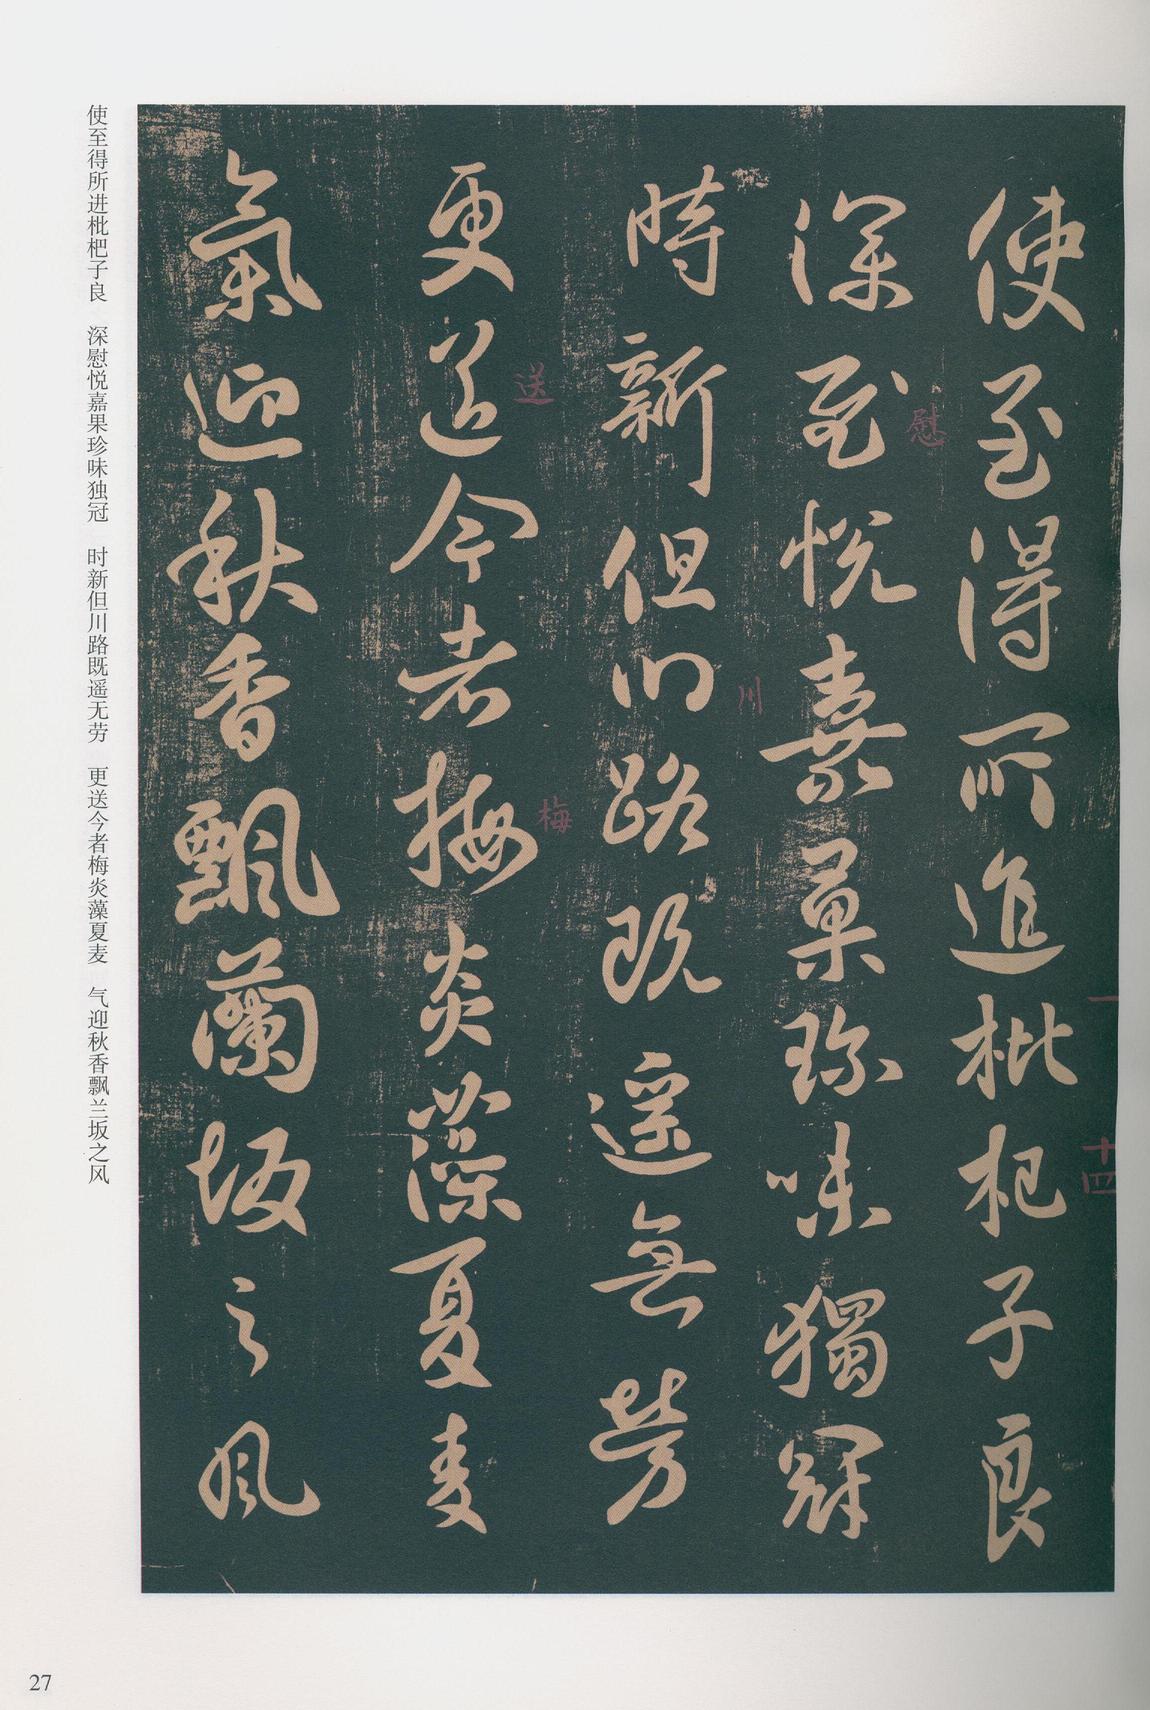 使至得所進枇杷子良
深慰悅嘉菓珍味獨冠
時新但川路既遥無勞
更送今者梅炎藻夏麦
氣迎秋香飄蘭坂之風
慰
川
送
梅
一
十四
使至得所进枇杷子良 深慰悦嘉果珍味独冠 时新但川路既遥无劳 更送今者梅炎藻夏麦 气迎秋香飘兰坂之风
27